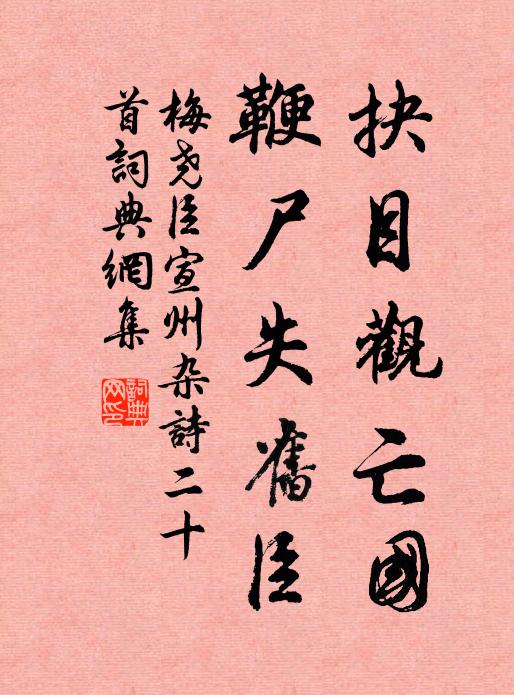 抉目觀亡國
鞭尸失舊臣
梅尧臣宣州杂詩二十
首詞典網集
詞典網印